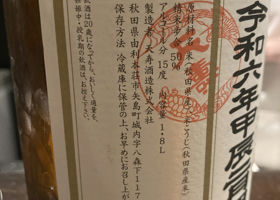 令和六年甲辰
原材料名 米(秋田県産)、米こうじ(秋田県産米)
精米歩合 50%
アルコール分 15度 内容量 1.8L
製造者 天寿酒造株式会社
秋田県由利本荘市矢島町城内字八森下117
保存方法 冷蔵庫に保管の上、お早めにお召し上が
飲酒は20歳になってから。おいしく適量を。
・授乳期の飲酒は、お控え下さい。